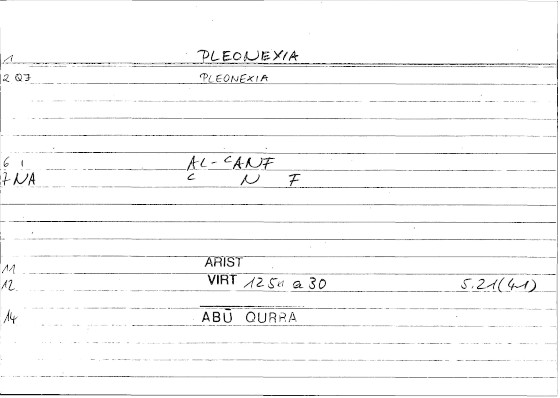 1 PLEONEXIA
2 Q7 PLEONEXIA
6 1 AL-cANF
7 NA c N F
11 ARIST
12 VIRT 1251 a 30 5.21(41)
14 ABŪ QURRA